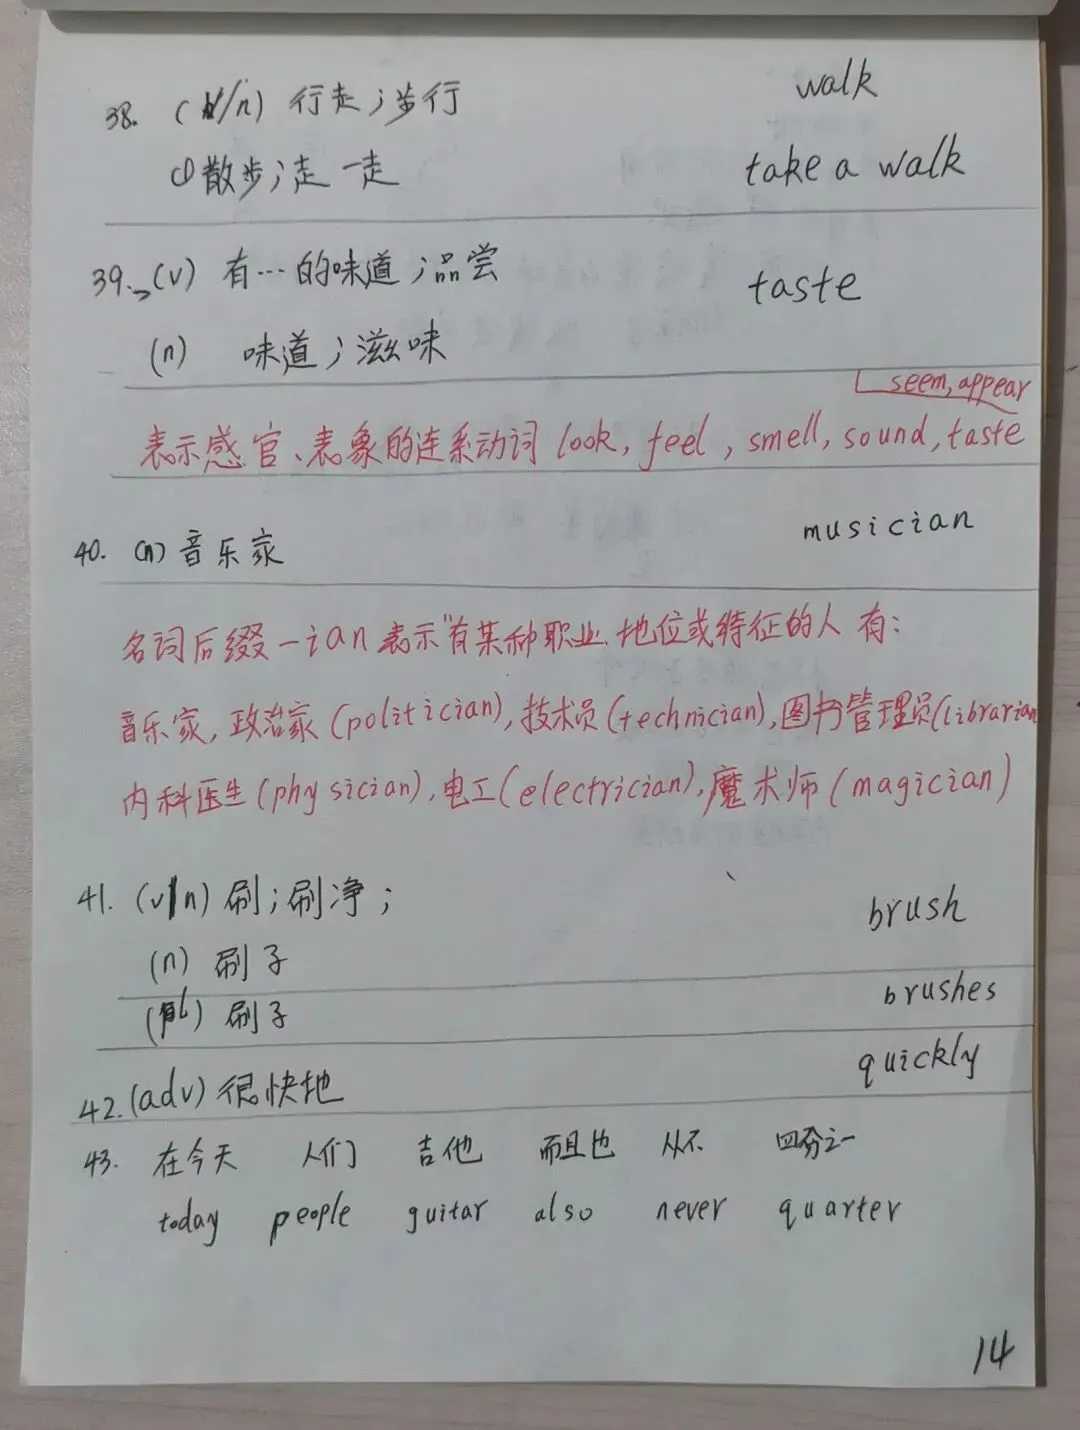 38. (v/n) 行走；步行 walk
① 散步；走一走 take a walk
39. (v) 有…的味道；品尝 taste
(n) 味道；滋味
seem, appear
表示感官、表象的连系动词 look, feel, smell, sound, taste
40. (n) 音乐家 musician
名词后缀-ian 表示"有某种职业、地位或特征的人 有：
音乐家, 政治家 (politician), 技术员 (technician), 图书管理员 (librarian
内科医生 (physician), 电工 (electrician), 魔术师 (magician)
41. (v/n) 刷；刷净； brush
(n) 刷子
(pl) 刷子 brushes
42. (adv) 很快地 quickly
43. 在今天 人们 吉他 而且也 从不 四分之一
today people guitar also never quarter
14